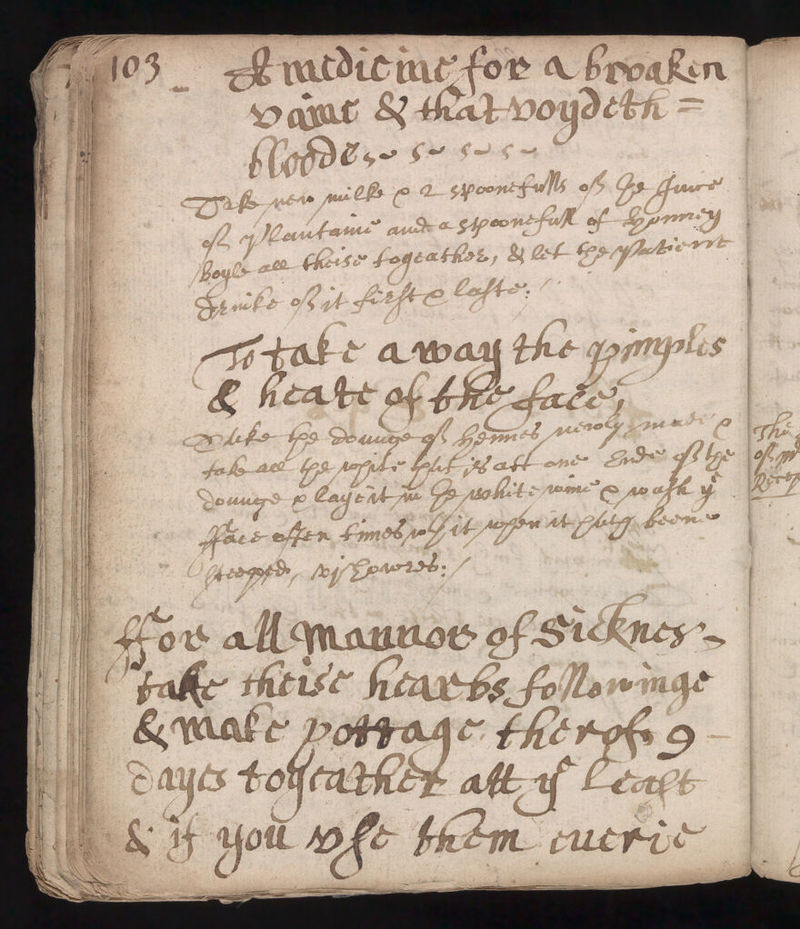 103 A medicine for a broaken
vaine & that voydeth =
bloode
Take new milke & 2 spoonefulls of the Juice
of Plantaine and a spoonefull of Honney
boyle all theise togeather, & let the Patient
drinke of it first & laste:/
To take away the pimples
& heate of the face,
Take the dounge of Hennes newly made &
take all the white that is att one Ende of the
dounge & laye it in the white wine & wash yͤ
fface often times wth it when it hath beene
steeped, vj howres:/
ffor all mannor of Sicknes
take theise hearbs followinge
& make pottage therof 9
dayes togeather att yͤ least
& if you vse them euerie
The
of my
Recep